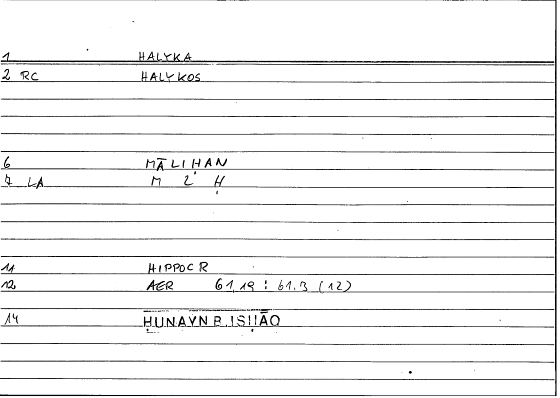 1 HALYKA
2 RC HALYKOS
6 MĀLIḤAN
7 LA M L Ḥ
11 HIPPOCR
12 AER 61,19 : 61.3 (12)
14 ḤUNAYN B. ISḤĀQ